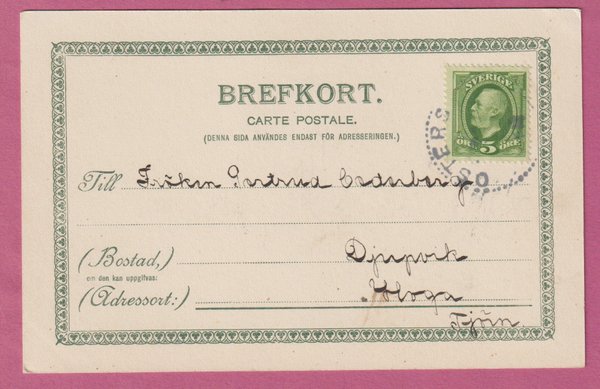 BREFKORT.
CARTE POSTALE.
(DENNA SIDA ANVÄNDES ENDAST FÖR ADRESSERINGEN.)
SVERIGE
ÖRE 5 ÖRE
Till Fröken Gertrud Cederberg
(Bostad,)
om den kan uppgifvas:
Djupvik
(Adressort:)
Tjörn